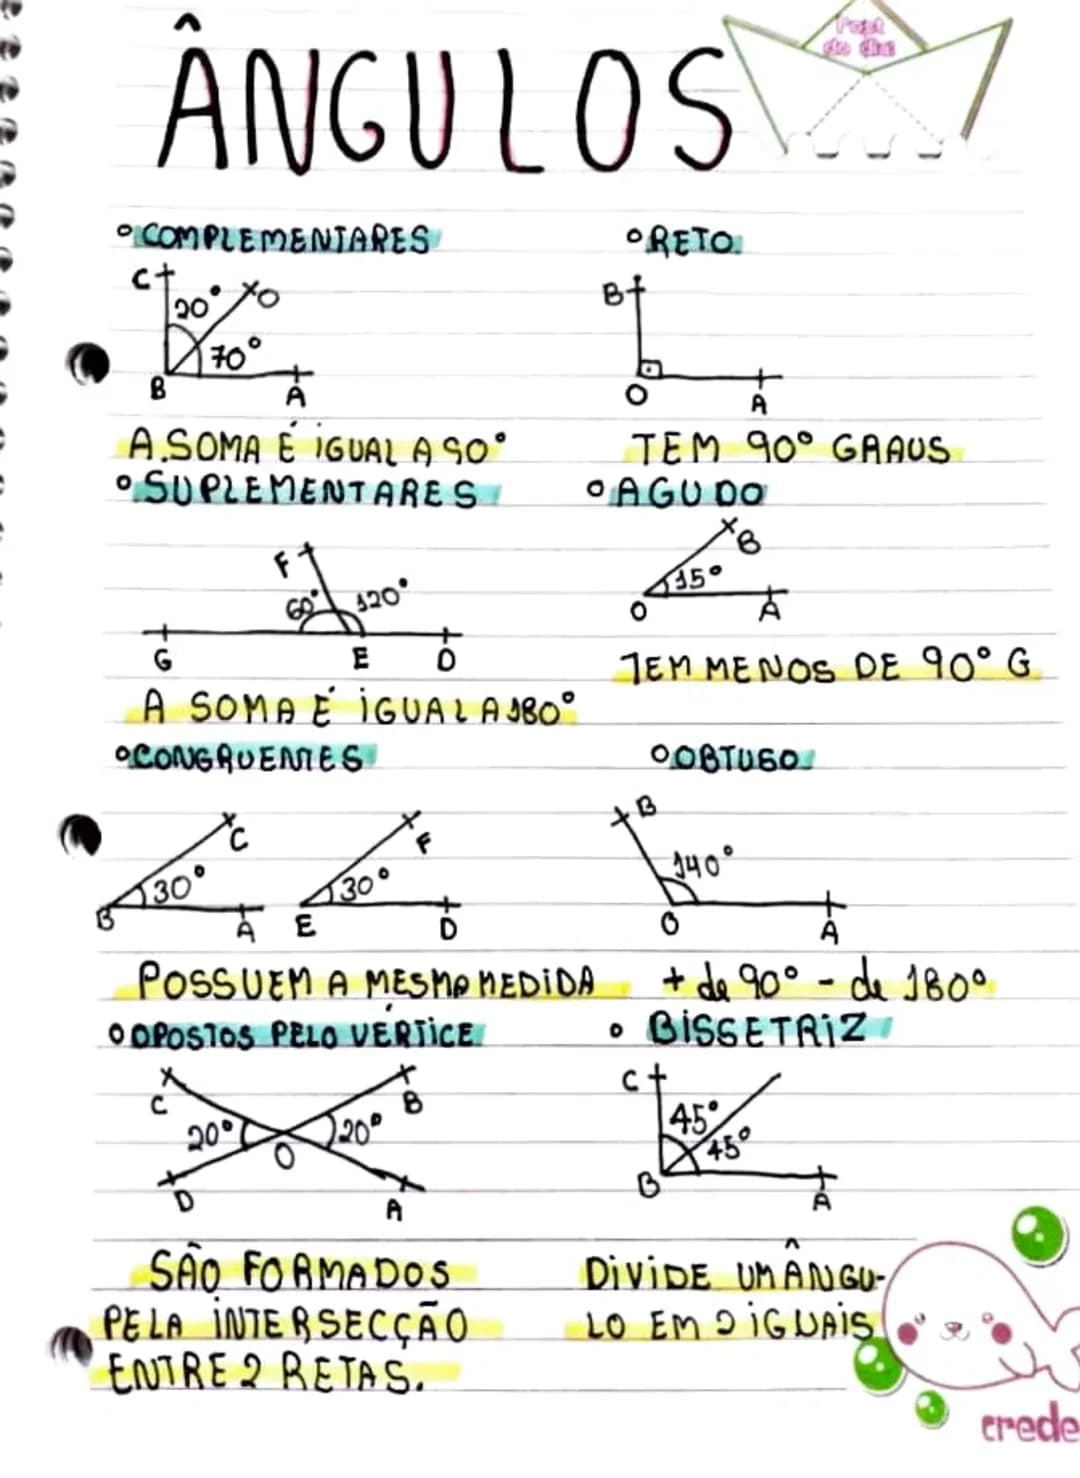 Post
do dia
ÂNGULOS
COMPLEMENTARES
C
20°
O
70°
B
A
A SOMA É IGUAL A 90°
RETO
B
O
A
TEM 90° GRAUS
SUPLEMENTARES
F
60°
120°
G
E
D
A SOMA É IGUAL A 180°
AGUDO
B
15°
O
A
TEM MENOS DE 90° G
CONGRUENTES
C
30°
B
A
F
30°
E
D
POSSUEM A MESMA MEDIDA
OBTUSO
B
140°
O
A
+ de 90° - de 180°
OPOSTOS PELO VÉRTICE
C
B
20°
20°
O
D
A
SÃO FORMADOS
PELA INTERSECÇÃO
ENTRE 2 RETAS.
BISSETRIZ
C
45°
45°
B
A
DIVIDE UM ÂNGU-
LO EM 2 IGUAIS
crede